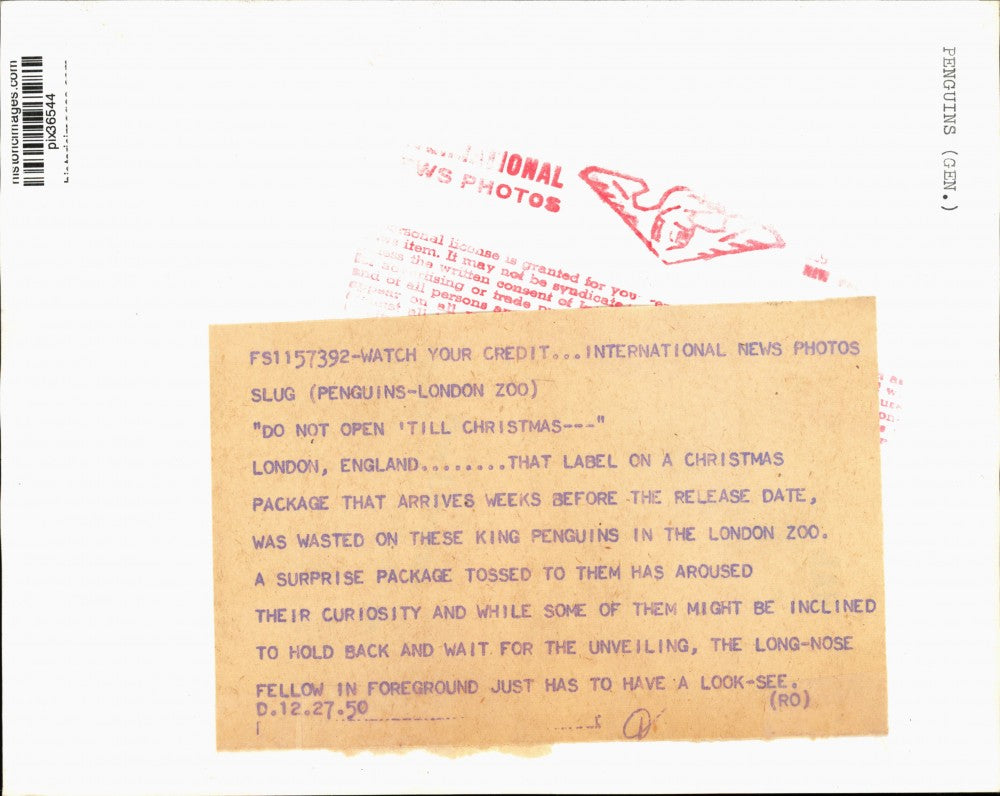 historicimages.com
pix36544
PENGUINS (GEN.)
IONAL
WS PHOTOS
sonal license is granted for you
item. It may not be syndicate
the written consent of
ising or trade
and of all persons
on all
NEW
FS1157392-WATCH YOUR CREDIT...INTERNATIONAL NEWS PHOTOS
SLUG (PENGUINS-LONDON ZOO)
"DO NOT OPEN 'TILL CHRISTMAS---"
LONDON, ENGLAND........THAT LABEL ON A CHRISTMAS
PACKAGE THAT ARRIVES WEEKS BEFORE THE RELEASE DATE,
WAS WASTED ON THESE KING PENGUINS IN THE LONDON ZOO.
A SURPRISE PACKAGE TOSSED TO THEM HAS AROUSED
THEIR CURIOSITY AND WHILE SOME OF THEM MIGHT BE INCLINED
TO HOLD BACK AND WAIT FOR THE UNVEILING, THE LONG-NOSE
FELLOW IN FOREGROUND JUST HAS TO HAVE A LOOK-SEE.
D.12.27.50 (RO)